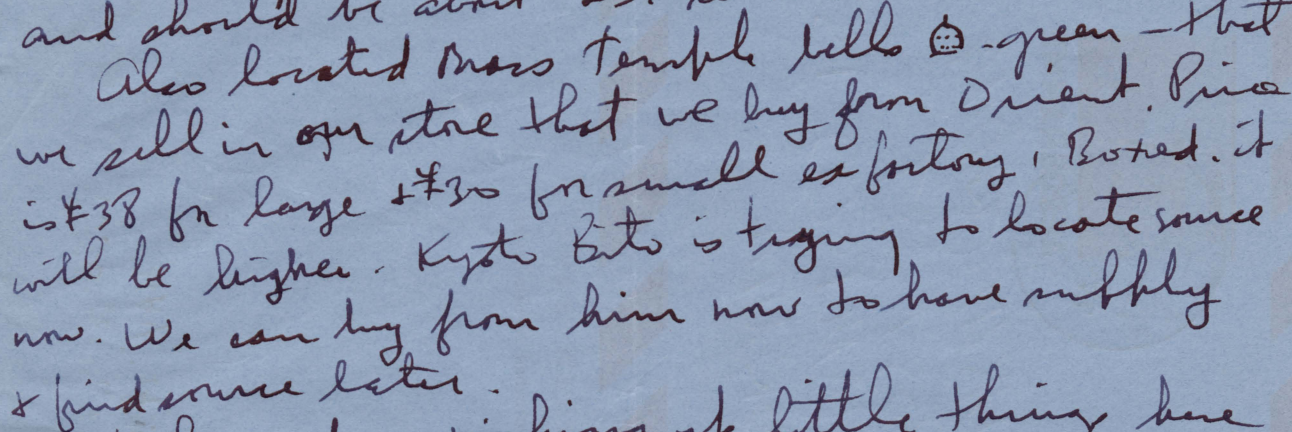 and should be about
Also located Brass Temple bells - green - that
we sell in our store that we buy from Orient. Price
is ¥38 for large + ¥30 for small ex factory, Boxed. it
will be higher. Kyoto Bito is trying to locate source
now. We can buy from him now to have supply
& find source later.
little things here